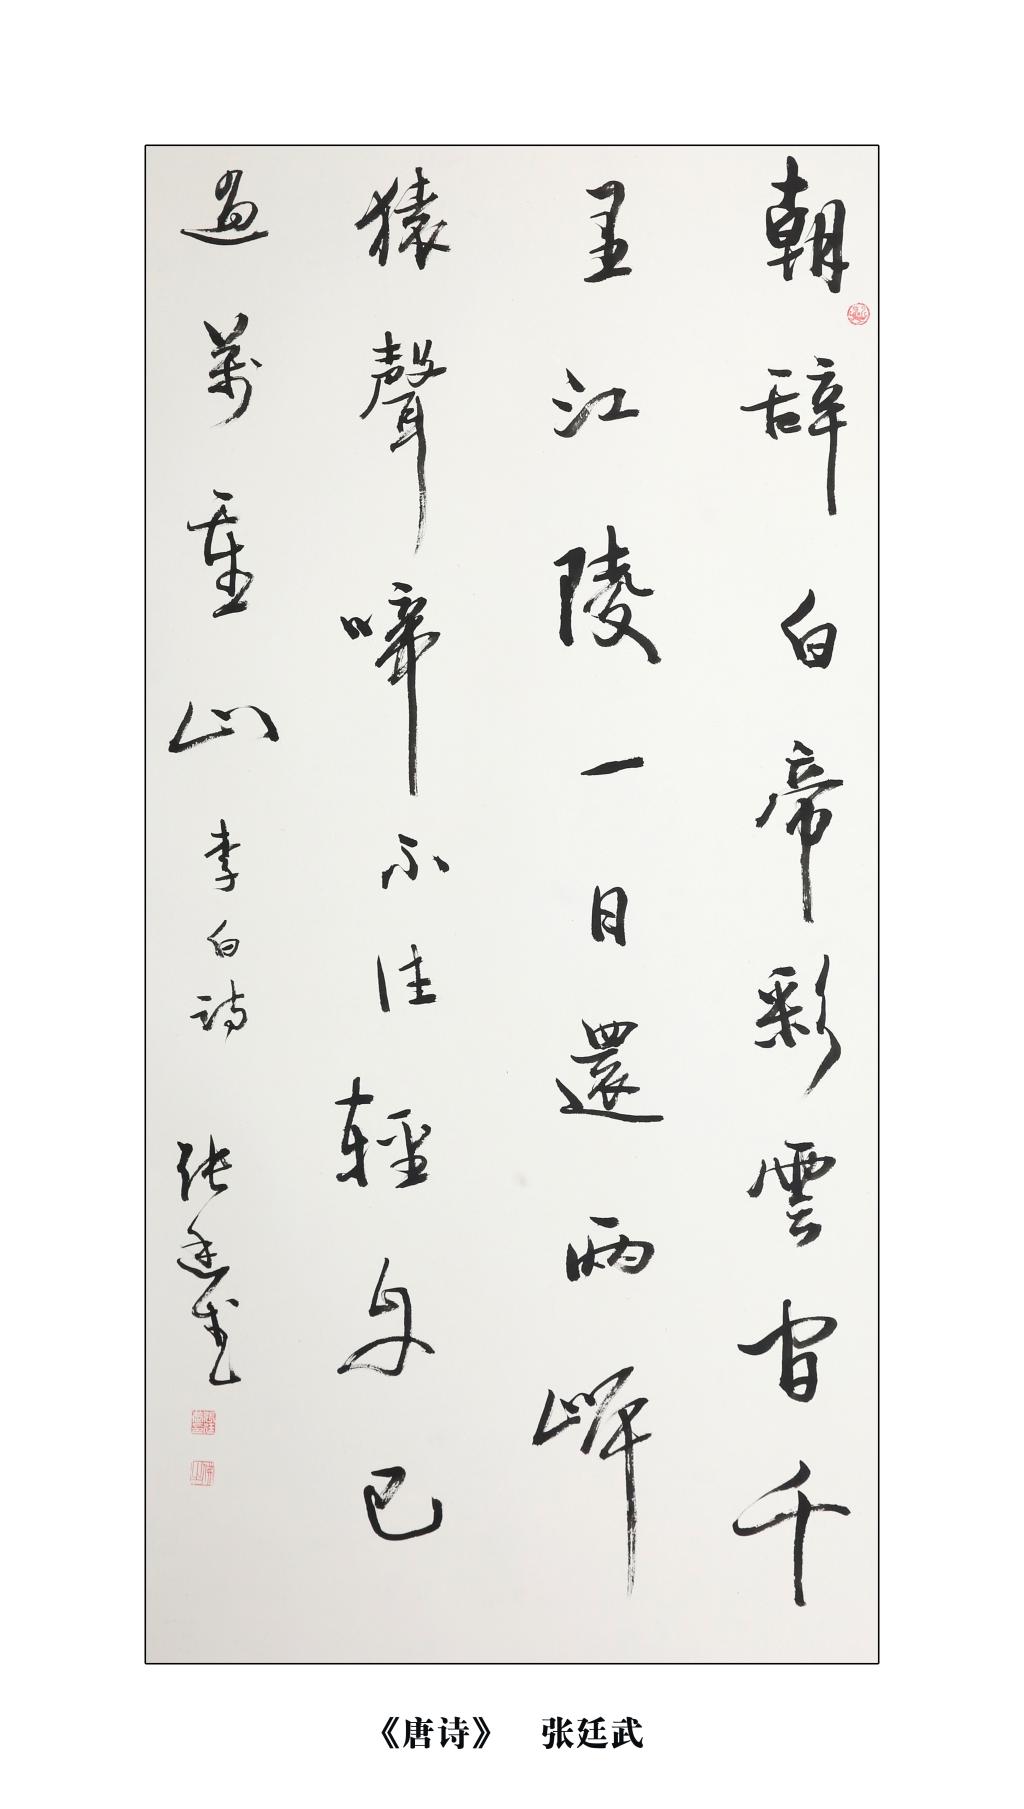 朝辞白帝彩雲間千
里江陵一日還兩岸
猿聲啼不住輕舟已
過萬重山 李白詩 張廷武
《唐诗》 张廷武